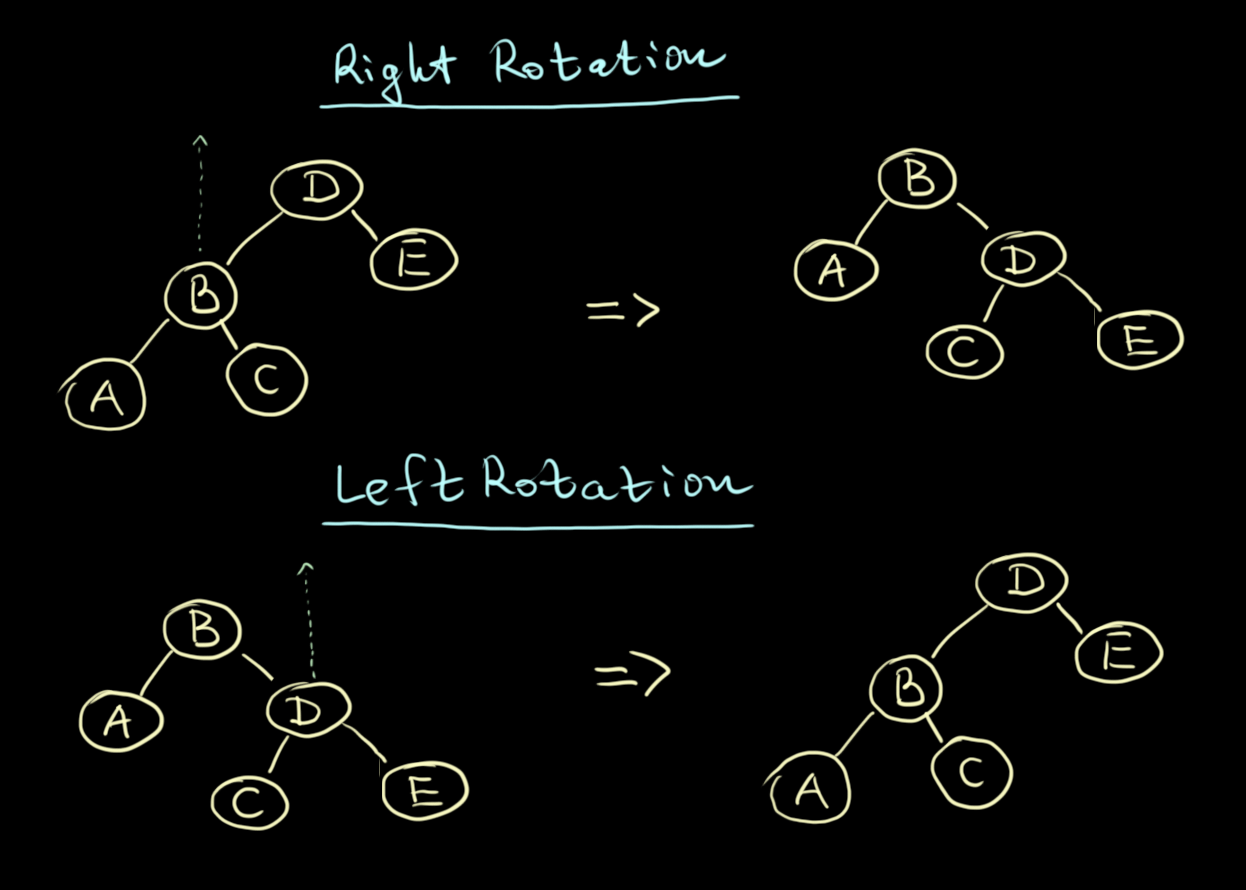 Right Rotation
D
B
E
B
A
D
=>
A
C
C
E
Left Rotation
B
D
A
D
=>
B
E
C
E
A
C